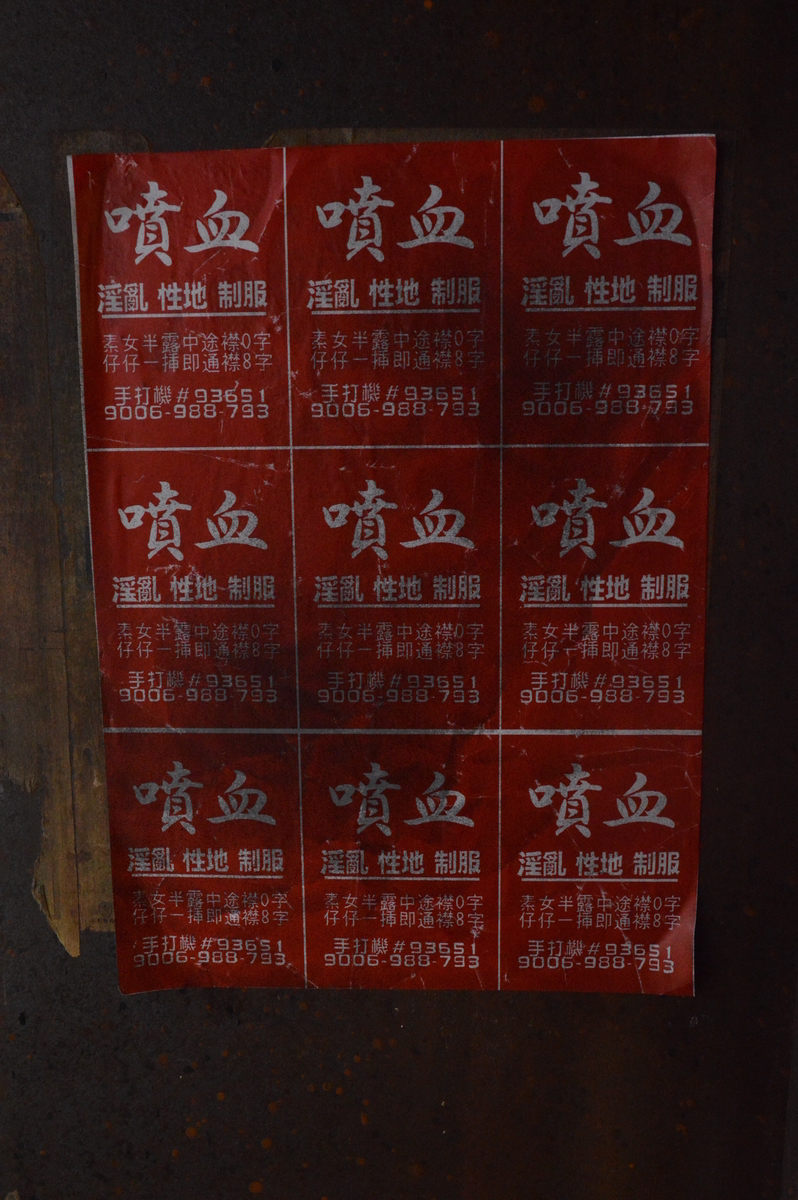 噴血 噴血 噴血
淫亂 性地 制服 淫亂 性地 制服 淫亂 性地 制服
素女半露中途襟0字 素女半露中途襟0字 素女半露中途襟0字
仔仔一揷即通襟8字 仔仔一揷即通襟8字 仔仔一揷即通襟8字
手打機#93651 手打機#93651 手打機#93651
9006-988-793 9006-988-793 9006-988-793
噴血 噴血 噴血
淫亂 性地 制服 淫亂 性地 制服 淫亂 性地 制服
素女半露中途襟0字 素女半露中途襟0字 素女半露中途襟0字
仔仔一揷即通襟8字 仔仔一揷即通襟8字 仔仔一揷即通襟8字
手打機#93651 手打機#93651 手打機#93651
9006-988-793 9006-988-793 9006-988-793
噴血 噴血 噴血
淫亂 性地 制服 淫亂 性地 制服 淫亂 性地 制服
素女半露中途襟0字 素女半露中途襟0字 素女半露中途襟0字
仔仔一揷即通襟8字 仔仔一揷即通襟8字 仔仔一揷即通襟8字
手打機#93651 手打機#93651 手打機#93651
9006-988-793 9006-988-793 9006-988-793